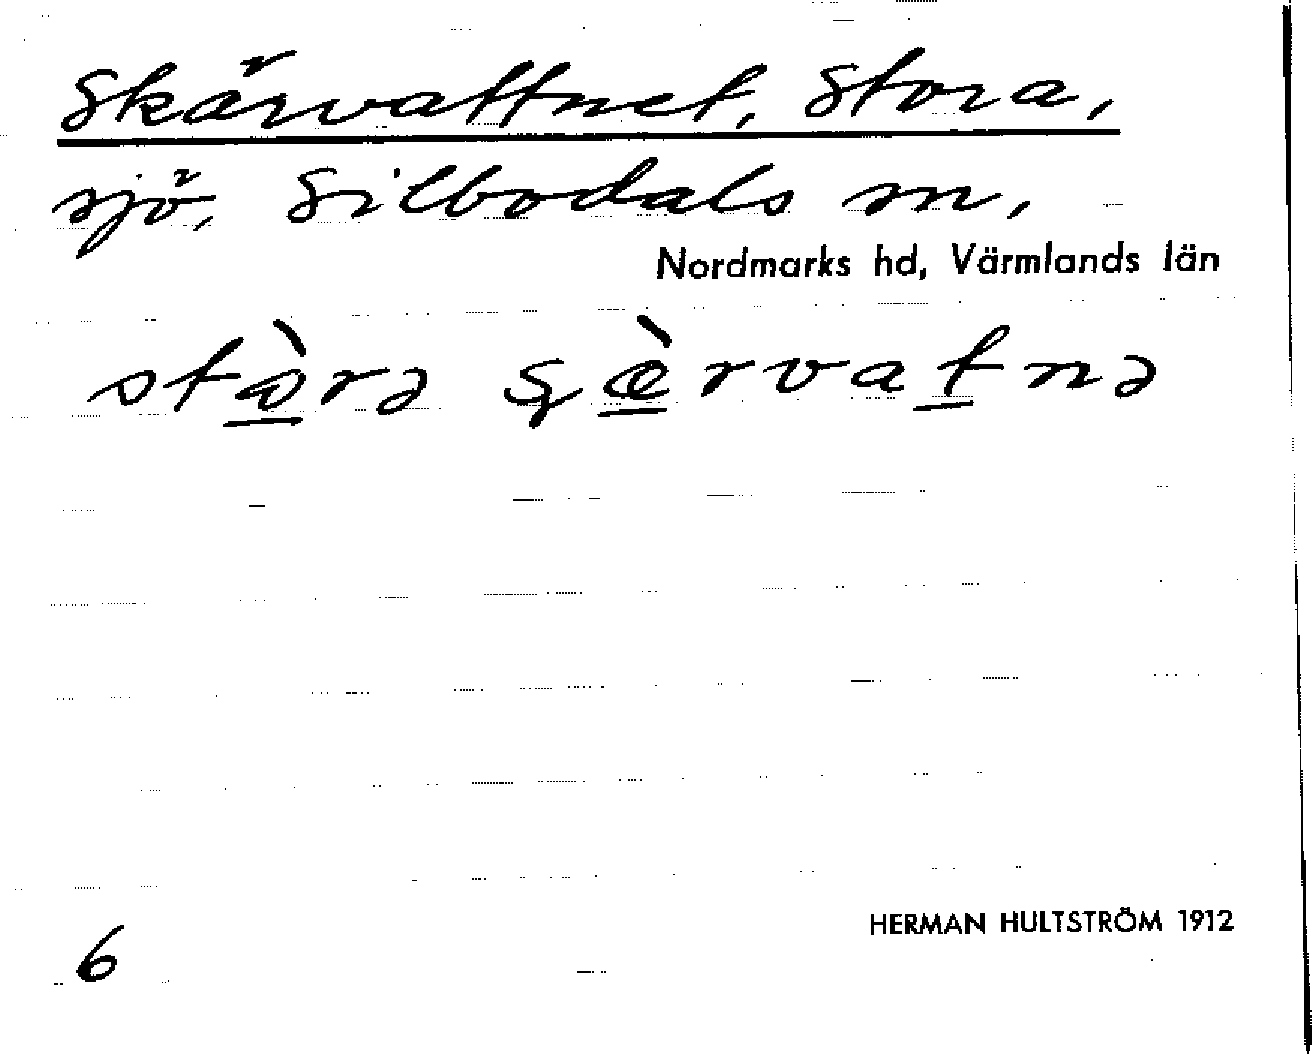 Skärvattnet, Stora,
sjö, Silbodals sn,
Nordmarks hd, Värmlands län
stò̠rə ʂæ̠̀rvat̠nə
HERMAN HULTSTRÖM 1912
6